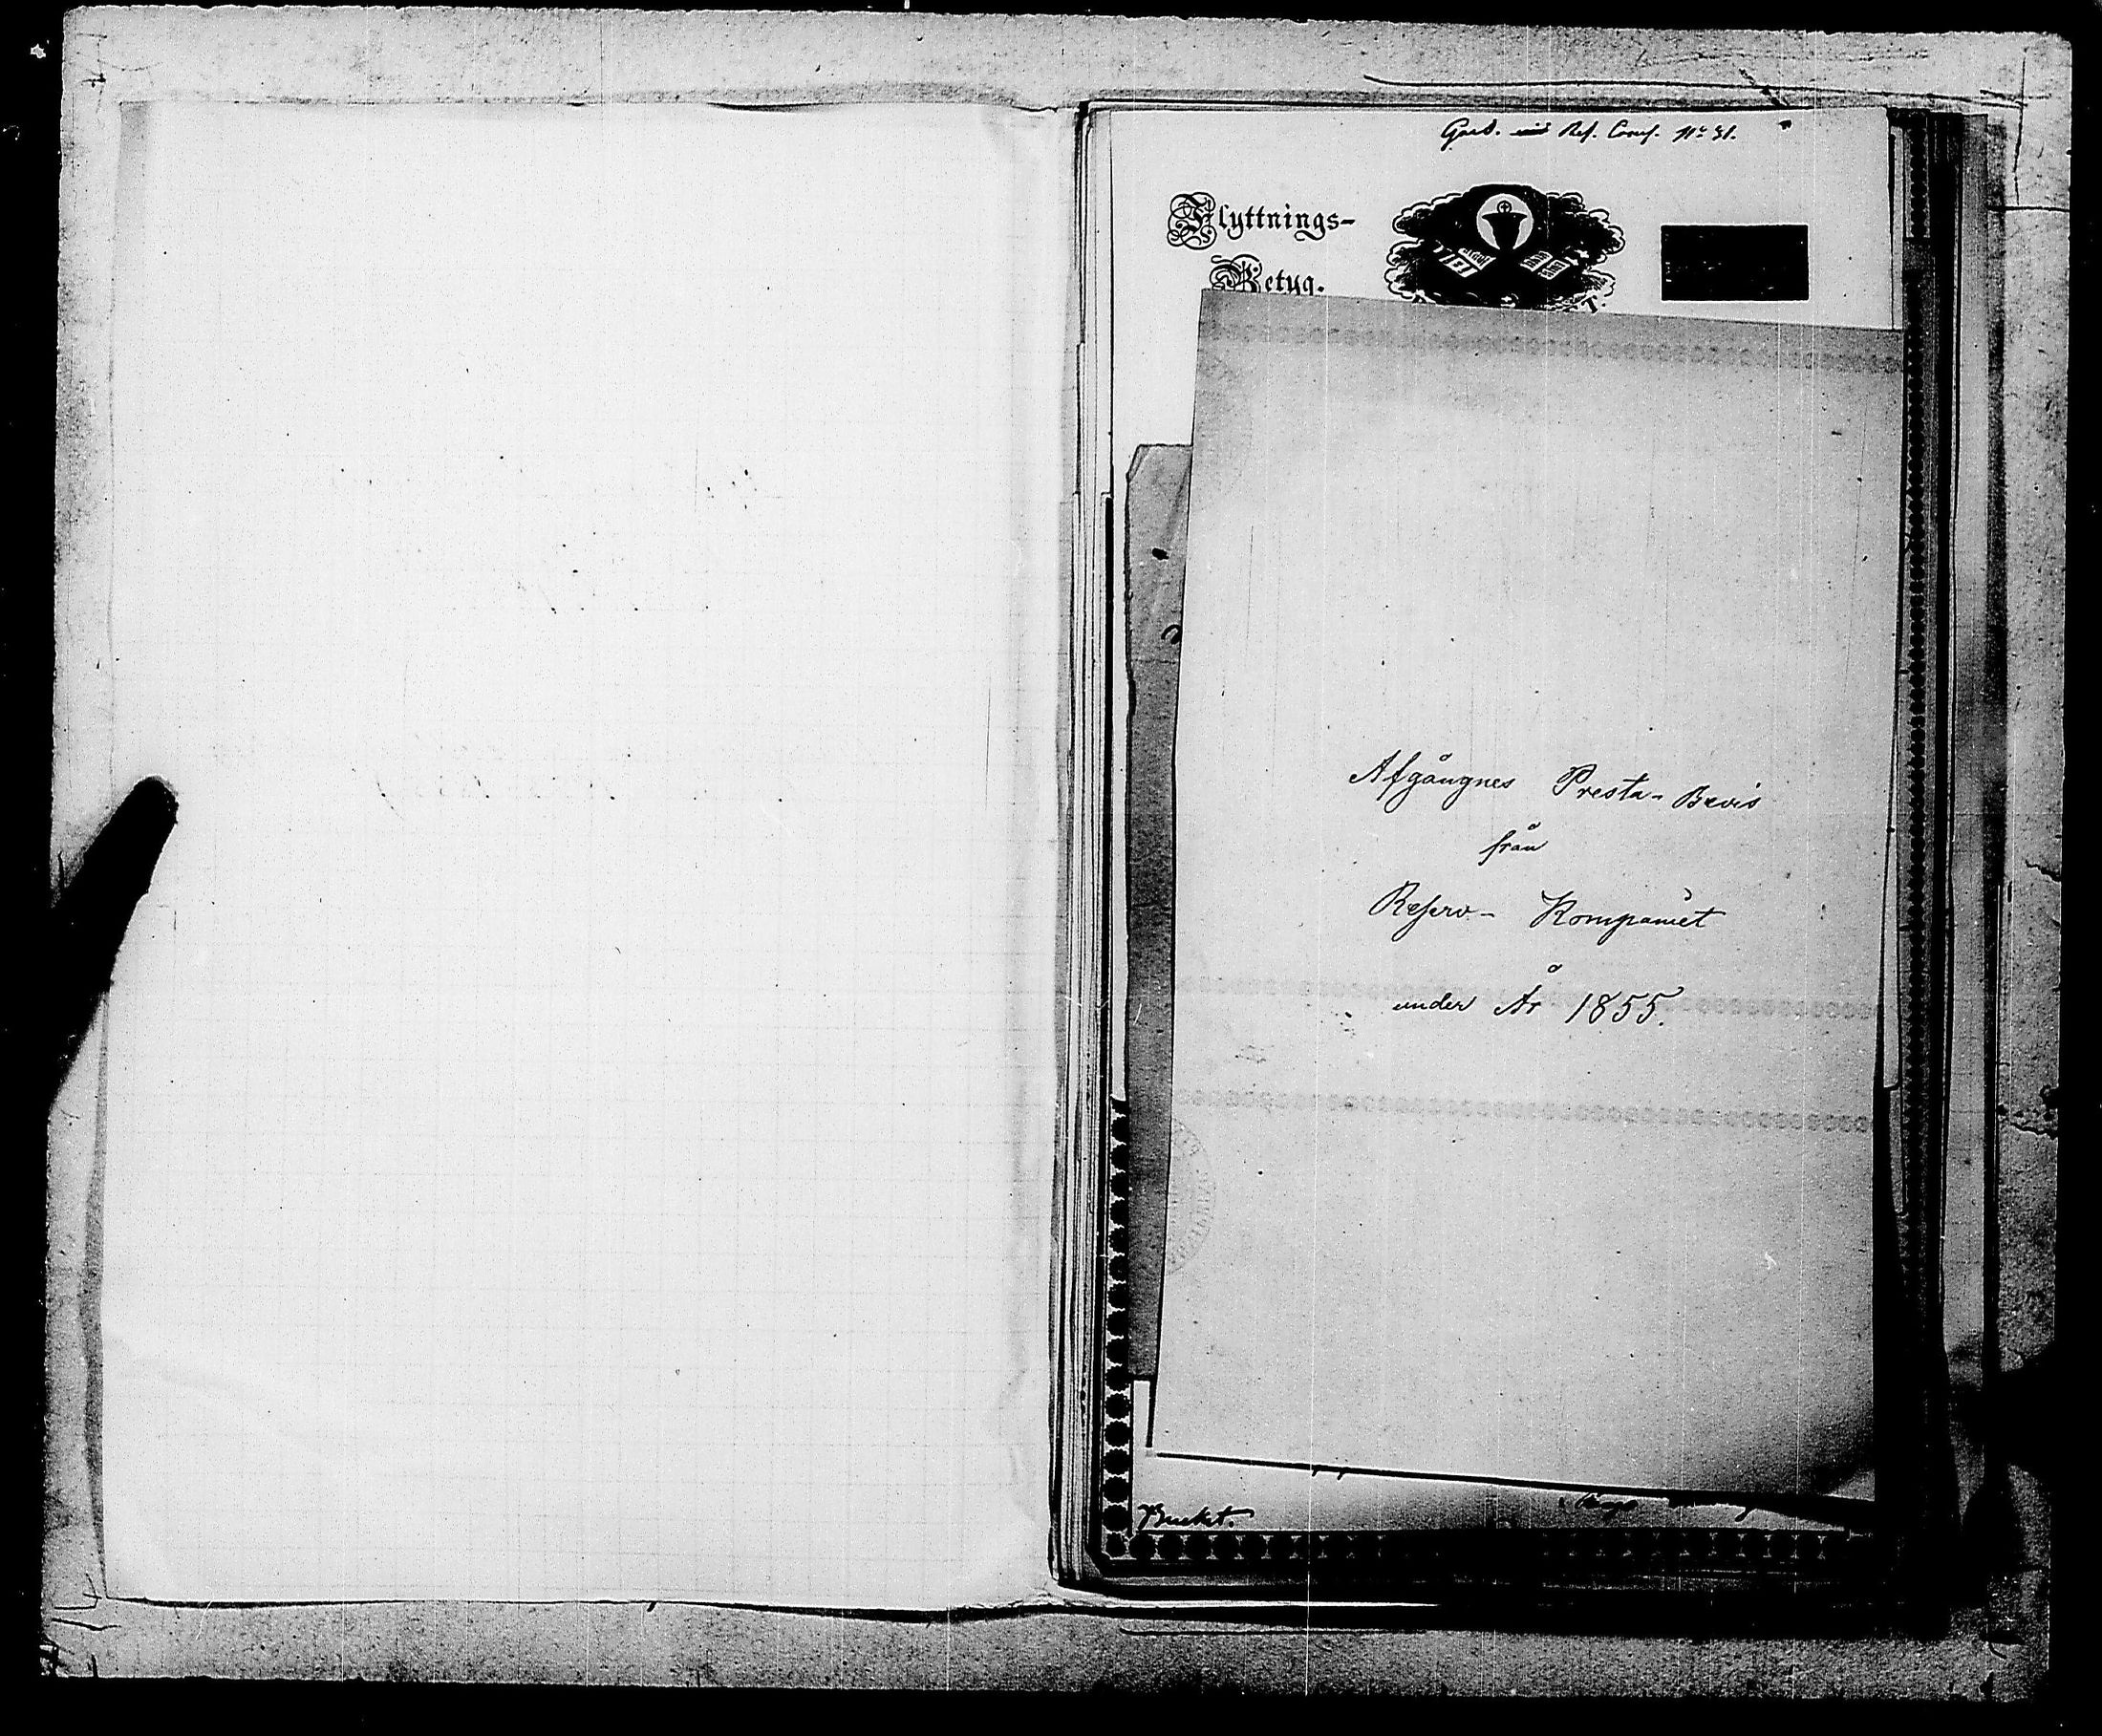 Ref. Conf. No 31.
Flyttnings-
Betyg.
Afgångnes Presta-Bevis
från
Reserv- Kompaniet
under År 1855.